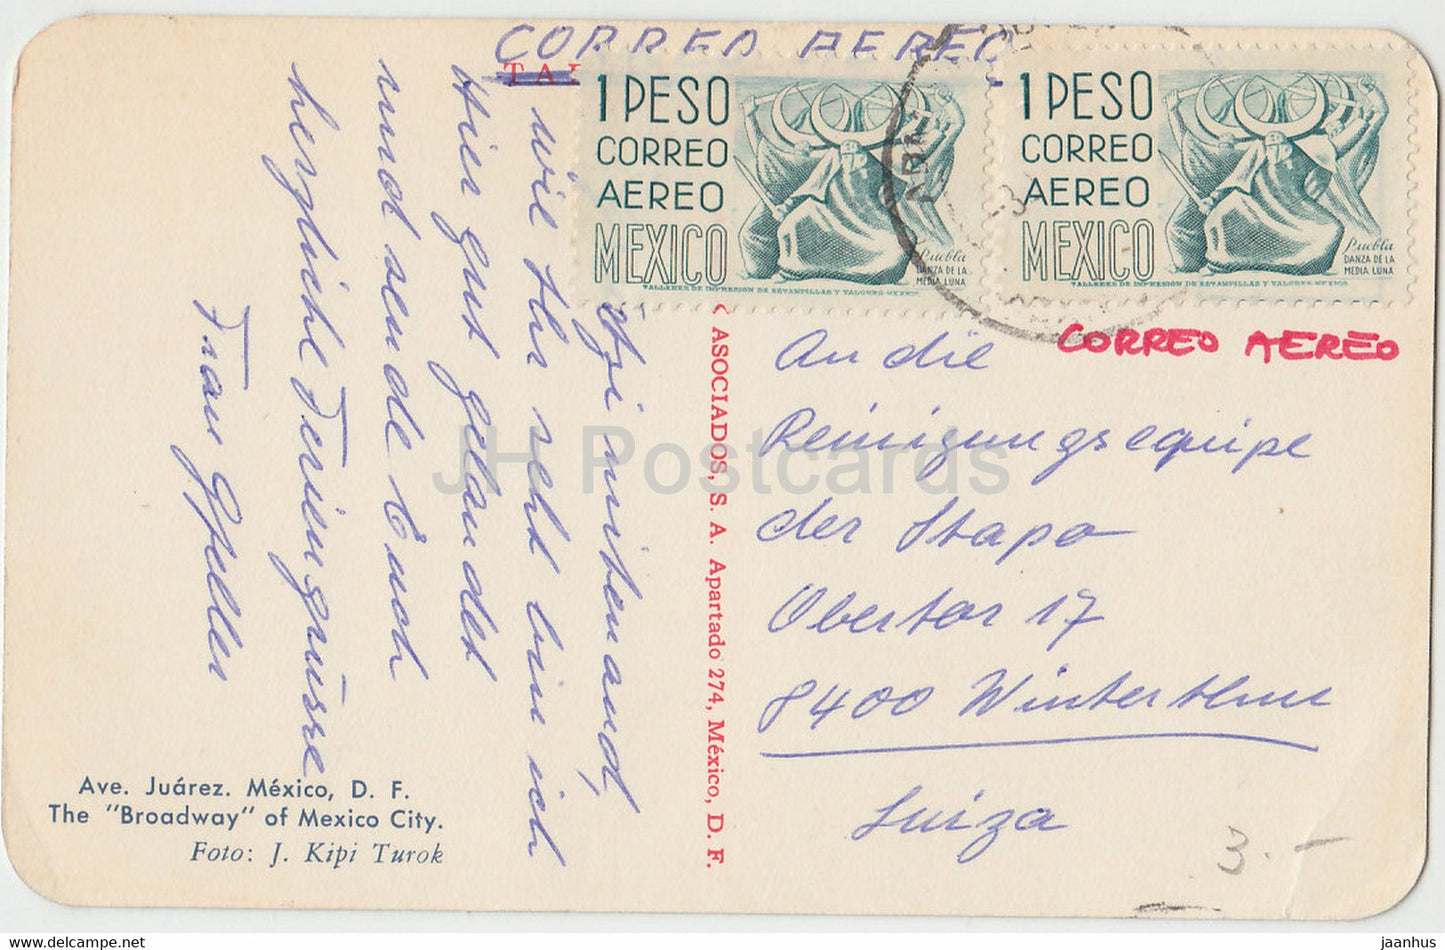 CORREO AEREO
1 PESO
CORREO
AEREO
MEXICO
Puebla
DANZA DE LA
MEDIA LUNA
TALLERES DE IMPRESION DE ESTAMPILLAS Y VALORES-MEXICO
1 PESO
CORREO
AEREO
MEXICO
Puebla
DANZA DE LA
MEDIA LUNA
TALLERES DE IMPRESION DE ESTAMPILLAS Y VALORES-MEXICO
CORREO AEREO
mitenand,
wie Ihr seht bin ich
hier gut gelandet
und sende Euch
herzliche Feriengrüsse
Frau Gfeller
ASOCIADOS, S. A. Apartado 274, México, D. F.
An die
Reinigungsequipe
der Stapo
Obertor 17
8400 Winterthur
Suiza
Ave. Juárez. México, D. F.
The "Broadway" of Mexico City.
Foto: J. Kipi Turok
3.-
JH Postcards
www.delcampe.net
jaanhus